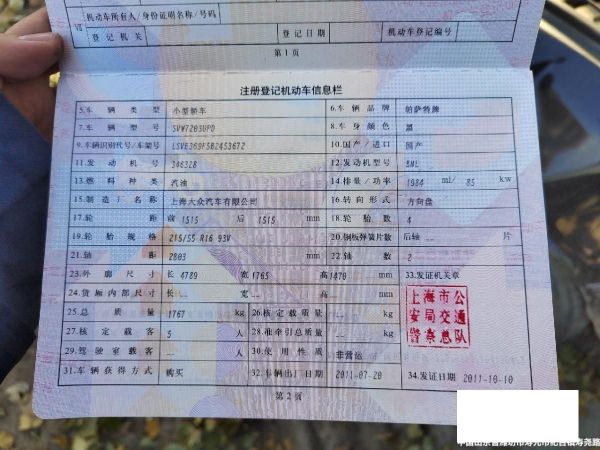 VII 机动车所有人/身份证明名称/号码
登记机关 登记日期 机动车登记编号
第1页
注册登记机动车信息栏
5.车辆类型 小型轿车 6.车辆品牌 帕萨特牌
7.车辆型号 SVW7203UPD 8.车身颜色 黑
9.车辆识别代号/车架号 LSVE369F5B2453672 10.国产/进口 国产
11.发动机号 346328 12.发动机型号 BNL
13.燃料种类 汽油 14.排量/功率 1984 ml/ 85 kw
15.制造厂名称 上海大众汽车有限公司 16.转向形式 方向盘
17.轮距 前 1515 后 1515 mm 18.轮胎数 4
19.轮胎规格 215/55 R16 93V 20.钢板弹簧片数 后轴 -- 片
21.轴距 2803 mm 22.轴数 2
23.外廓尺寸 长 4789 宽 1765 高 1470 mm 33.发证机关章
24.货厢内部尺寸 长 -- 宽 -- 高 -- mm
上海市公
安局交通
警察总队
25.总质量 1767 kg 26.核定载质量 -- kg
27.核定载客 5 人 28.准牵引总质量 -- kg
29.驾驶室载客 -- 人 30.使用性质 非营运
31.车辆获得方式 购买 32.车辆出厂日期 2011-07-20 34.发证日期 2011-10-10
第2页